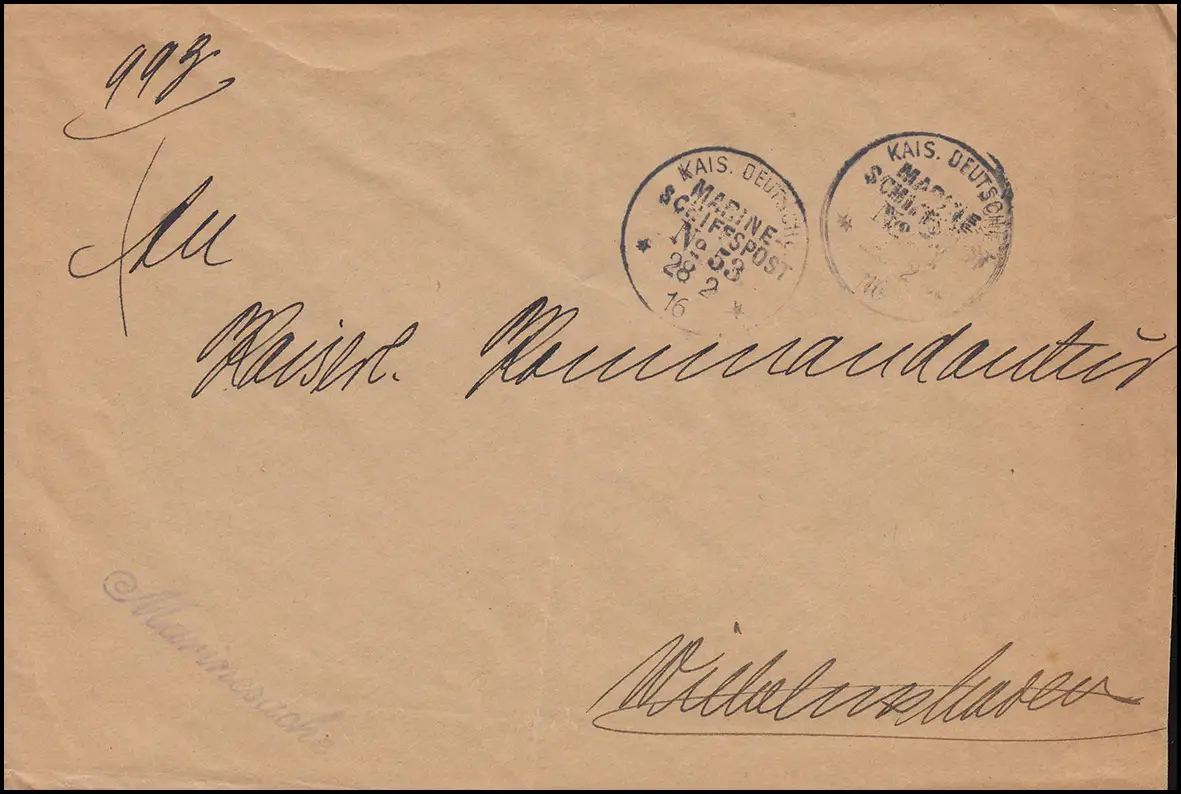 993
An
KAIS. DEUTSCHE
MARINE-
SCHIFFSPOST
No 53
28 2
16
KAIS. DEUTSCHE
MARINE
SCHIFFSPOST
No
2
Kaiserl. Kommandantur
Marinesache
Wilhelmshaven